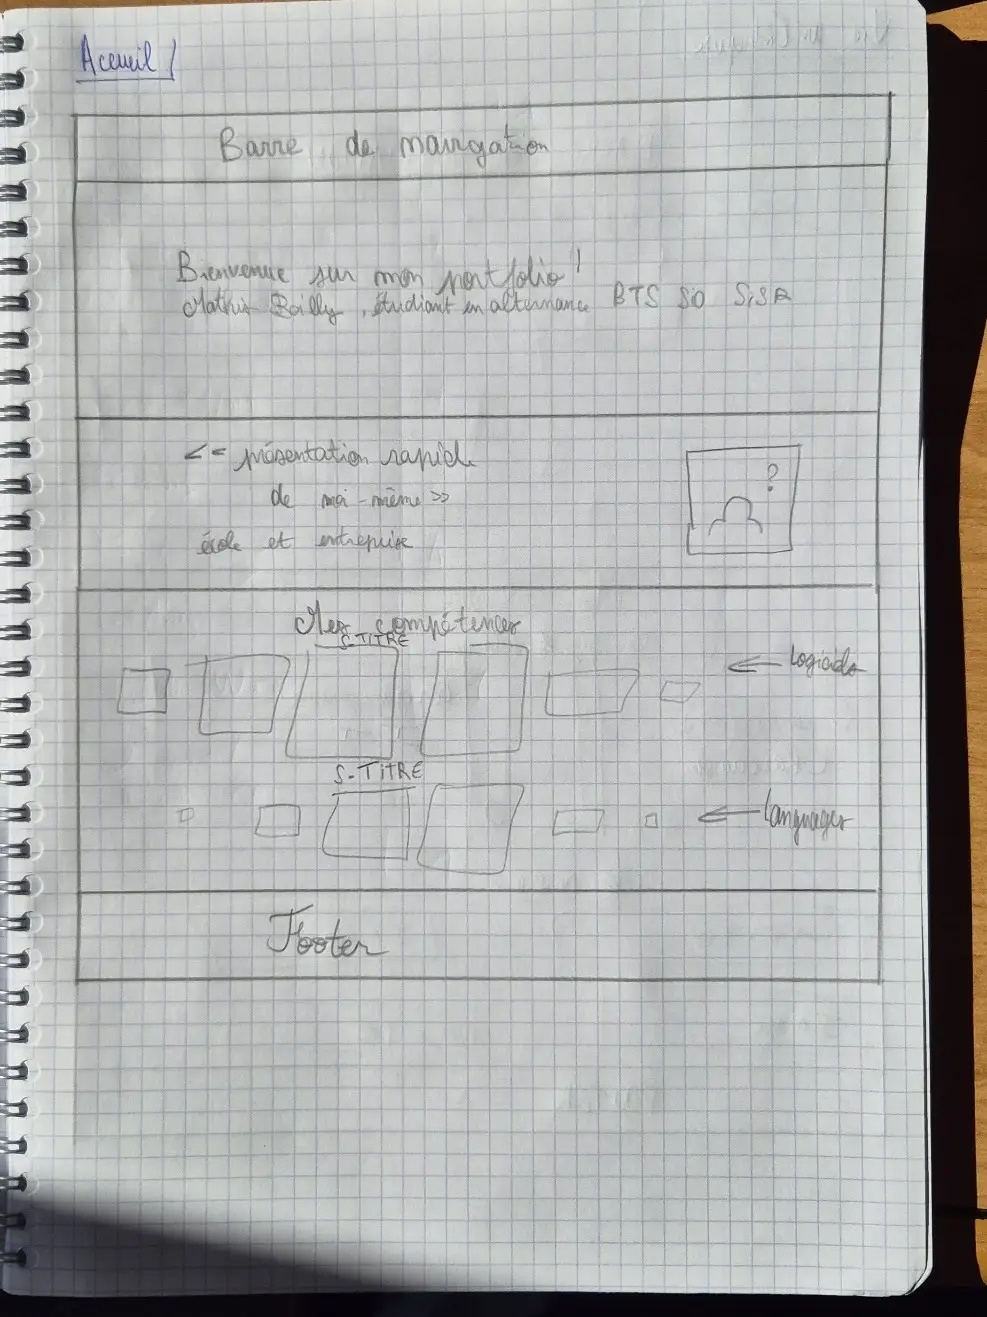 Accueil /
Barre de navigation
Bienvenue sur mon portfolio !
Bailly, étudiant en alternance BTS SIO SISR
<< présentation rapide
de moi-même >>
école et entreprise
?
Mes compétences
S-TITRE
← Logiciels
S-TITRE
← Languages
Footer